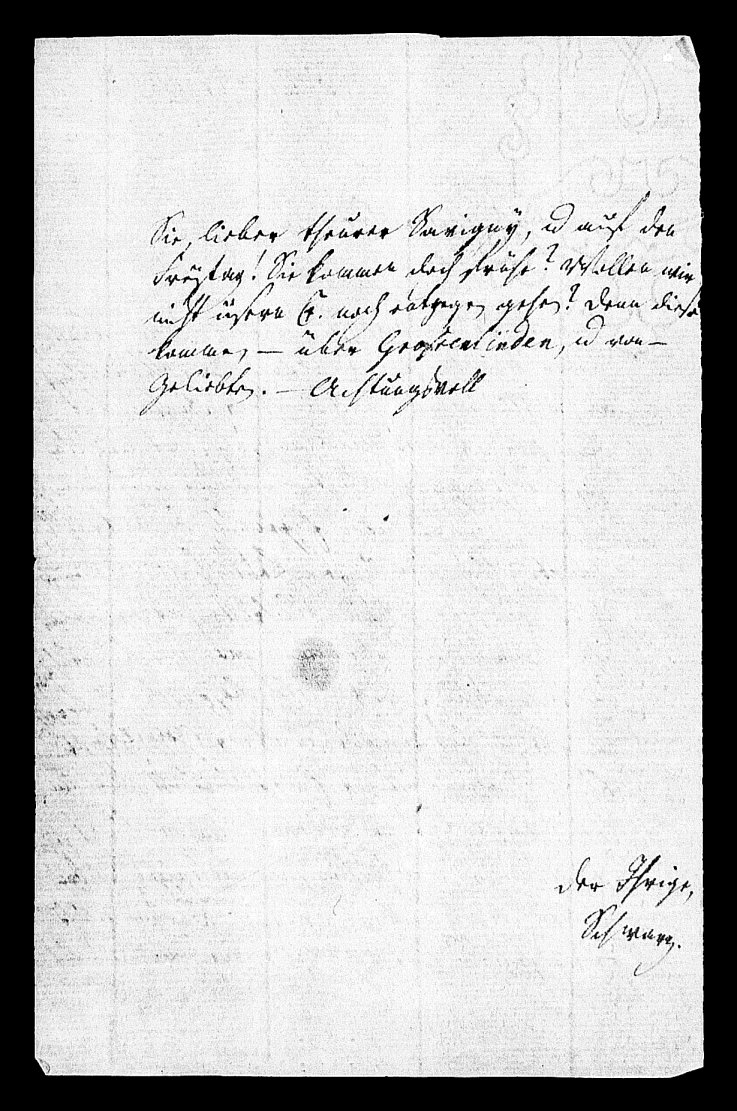 Sie, lieber theurer Savigny, u auf den
Freytag! Sie kommen doch frühe? Wollen wir
nicht unsern C. noch entgegen gehen? Denn diese
kommen — über Grossenlinden, u von —
Geliebten. — Achtungsvoll
der Ihrige,
Schwarz.